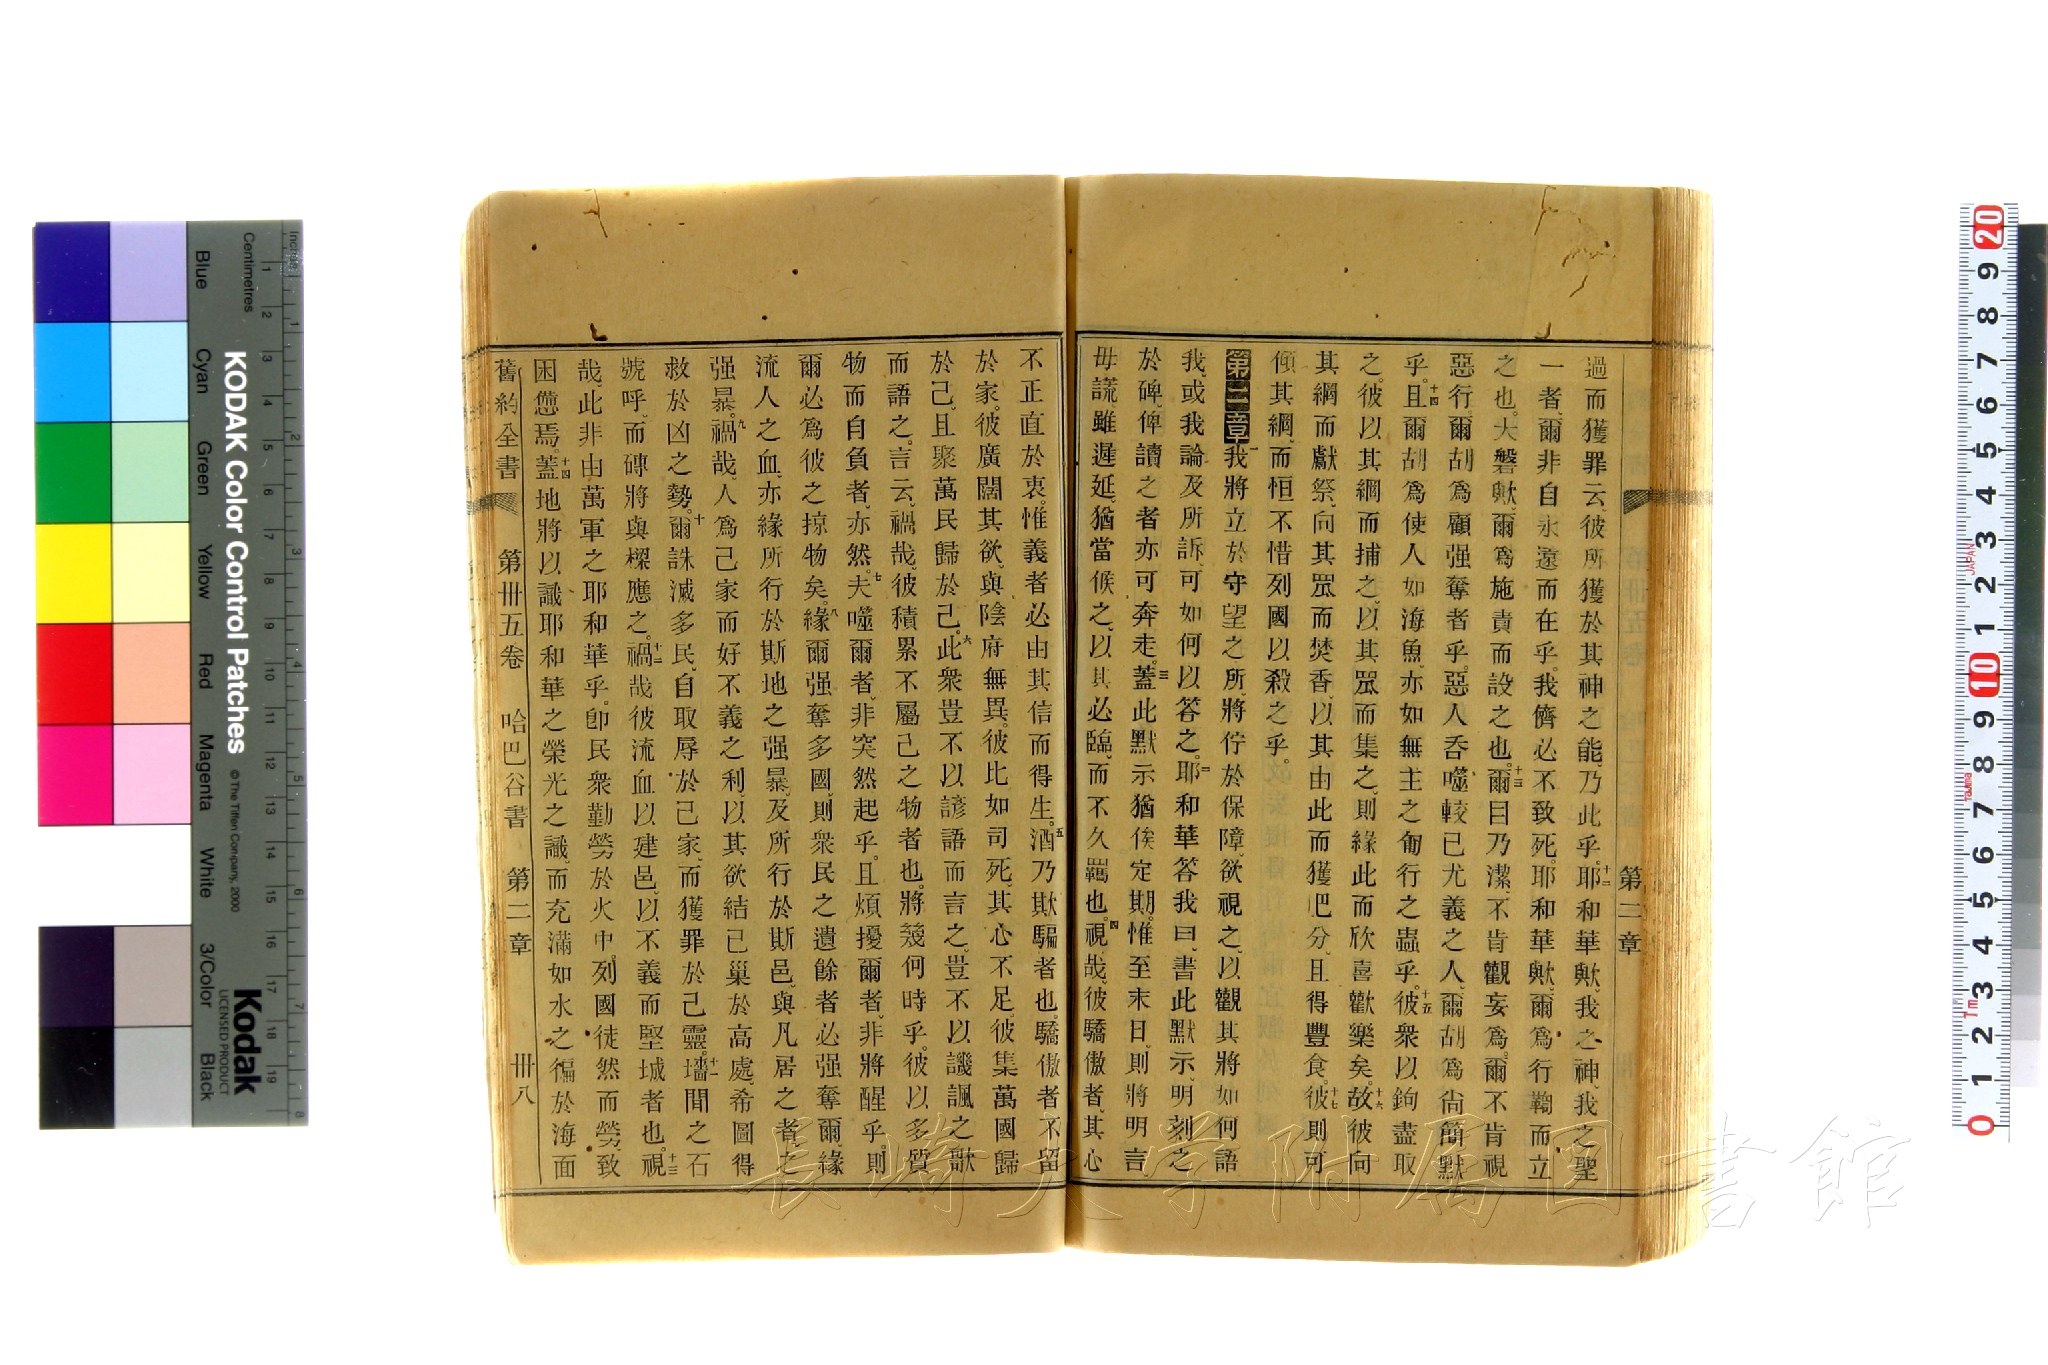 第二章
過而獲罪云、彼所獲於其神之能、乃此乎。十二耶和華歟、我之神、我之聖
一者、爾非自永遠而在乎。我儕必不致死。耶和華歟、爾爲行鞫而立
之也。大磐歟、爾爲施責而設之也。十三爾曰乃潔、不肯觀妄爲、爾不肯視
惡行、爾胡爲顧强奪者乎。惡人吞噬較己尤義之人、爾胡爲尙簡默
乎。十四且爾胡爲使人如海魚、亦如無主之匍行之蟲乎。十五彼衆以鉤盡取
之、彼以其網而捕之、以其罛而集之、則緣此而欣喜歡樂矣。十六故彼向
其網而獻祭、向其罛而焚香、以其由此而獲肥分、且得豐食。十七彼則可
傾其網、而恒不惜列國以殺之乎。
第二章一我將立於守望之所、將佇於保障、欲視之、以觀其將如何語
我、或我論及所訴、可如何以答之。二耶和華答我曰、書此默示、明刻之
於碑、俾讀之者亦可奔走。三蓋此默示猶俟定期。惟至末日、則將明言
毋謊、雖遲延、猶當候之、以其必臨、而不久羈也。四視哉、彼驕傲者、其心
不正直於衷。惟義者必由其信而得生。五酒乃欺騙者也。驕傲者不留
於家。彼廣闊其欲、與陰府無異。彼比如司死、其心不足、彼集萬國歸
於己、且聚萬民歸於己。六此衆豈不以諺語而言之、豈不以譏諷之歌
而語之。言云、禍哉、彼積累不屬己之物者也。將幾何時乎。彼以多質
物而自負者、亦然。七夫噬爾者、非突然起乎。且煩擾爾者、非將醒乎。則
爾必爲彼之掠物矣。八緣爾强奪多國、則衆民之遺餘者必强奪爾、緣
流人之血、亦緣所行於斯地之强暴、及所行於斯邑、與凡居之者、之
强暴。九禍哉、人爲己家而好不義之利、以其欲結己巢於高處、希圖得
救於凶之勢。十爾誅滅多民、自取辱於己家、而獲罪於己靈。十一墻間之石
號呼、而磚將與樑應之。十二禍哉彼流血以建邑、以不義而堅城者也。十三視
哉、此非由萬軍之耶和華乎。卽民衆勤勞於火中。列國徒然而勞、致
困憊焉。十四蓋地將以識耶和華之榮光之識、而充滿如水之徧於海面
舊約全書　第卅五卷　哈巴谷書　第二章　卅八
長崎大学附属図書館
KODAK Color Control Patches
© The Tiffen Company, 2000
Kodak
LICENSED PRODUCT
Inches
Centimetres
Blue
Cyan
Green
Yellow
Red
Magenta
White
3/Color
Black
JAPAN